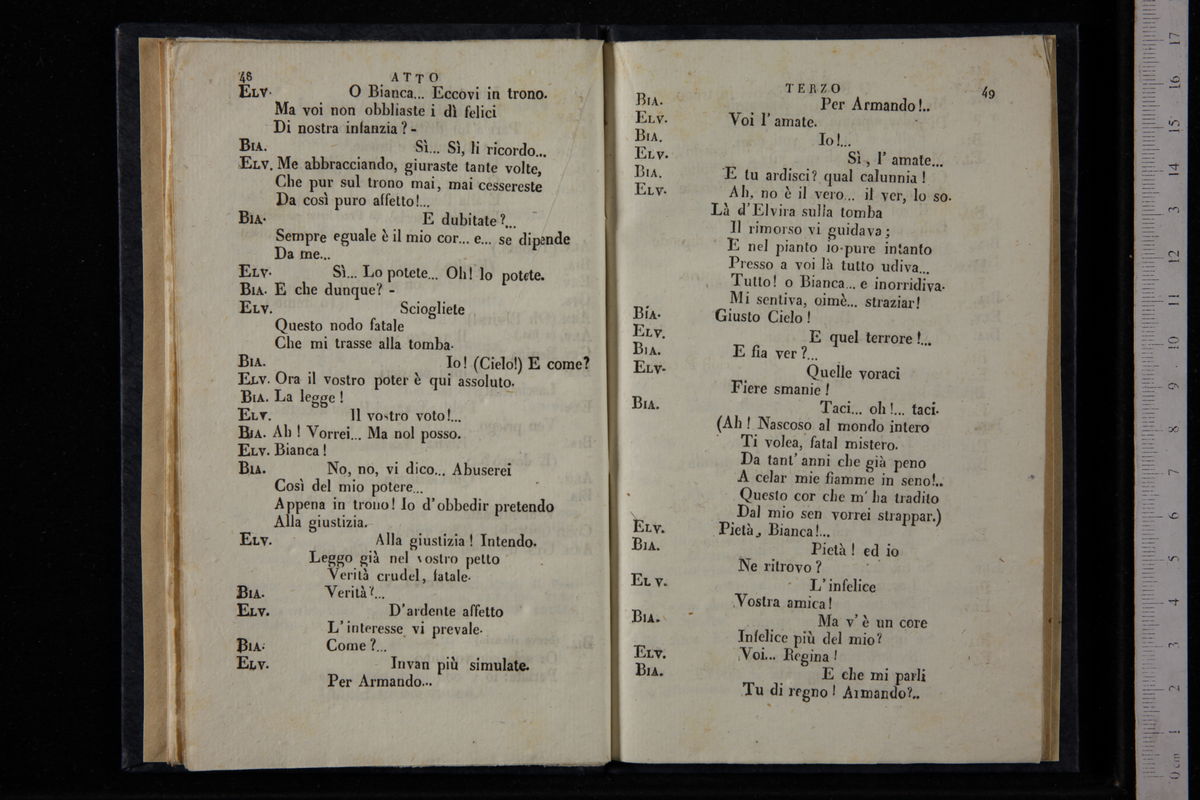 48 ATTO
ELV. O Bianca... Eccovi in trono.
Ma voi non obbliaste i dì felici
Di nostra infanzia? -
BIA. Sì... Sì, li ricordo...
ELV. Me abbracciando, giuraste tante volte,
Che pur sul trono mai, mai cessereste
Da così puro affetto!...
BIA. E dubitate?...
Sempre eguale è il mio cor... e... se dipende
Da me...
ELV. Sì... Lo potete... Oh! lo potete.
BIA. E che dunque? -
ELV. Sciogliete
Questo nodo fatale
Che mi trasse alla tomba.
BIA. Io! (Cielo!) E come?
ELV. Ora il vostro poter è qui assoluto.
BIA. La legge!
ELV. Il vostro voto!...
BIA. Ah! Vorrei... Ma nol posso.
ELV. Bianca!
BIA. No, no, vi dico... Abuserei
Così del mio potere...
Appena in trono! Io d'obbedir pretendo
Alla giustizia.
ELV. Alla giustizia! Intendo.
Leggo già nel vostro petto
Verità crudel, fatale.
BIA. Verità?...
ELV. D'ardente affetto
L'interesse vi prevale.
BIA. Come?...
ELV. Invan più simulate.
Per Armando...
TERZO 49
BIA. Per Armando!..
ELV. Voi l'amate.
BIA. Io!...
ELV. Sì, l'amate...
BIA. E tu ardisci? qual calunnia!
ELV. Ah, no è il vero... il ver, lo so.
Là d'Elvira sulla tomba
Il rimorso vi guidava;
E nel pianto io pure intanto
Presso a voi là tutto udiva...
Tutto! o Bianca... e inorridiva.
Mi sentiva, oimè... straziar!
BIA. Giusto Cielo!
ELV. E quel terrore!...
BIA. E fia ver?...
ELV. Quelle voraci
Fiere smanie!
BIA. Taci... oh!... taci.
(Ah! Nascoso al mondo intero
Ti volea, fatal mistero.
Da tant'anni che già peno
A celar mie fiamme in seno!..
Questo cor che m'ha tradito
Dal mio sen vorrei strappar.)
ELV. Pietà, Bianca!...
BIA. Pietà! ed io
Ne ritrovo?
ELV. L'infelice
Vostra amica!
BIA. Ma v'è un core
Infelice più del mio?
ELV. Voi... Regina!
BIA. E che mi parli
Tu di regno! Armando?..
0 cm 1 2 3 4 5 6 7 8 9 10 11 12 13 14 15 16 17